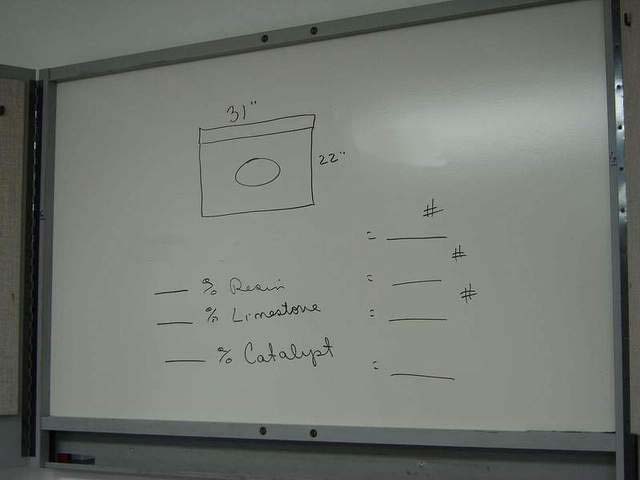 31"
22"
#
= ____
#
____ % Resin = ____
#
____ % Limestone = ____
____ % Catalyst = ____